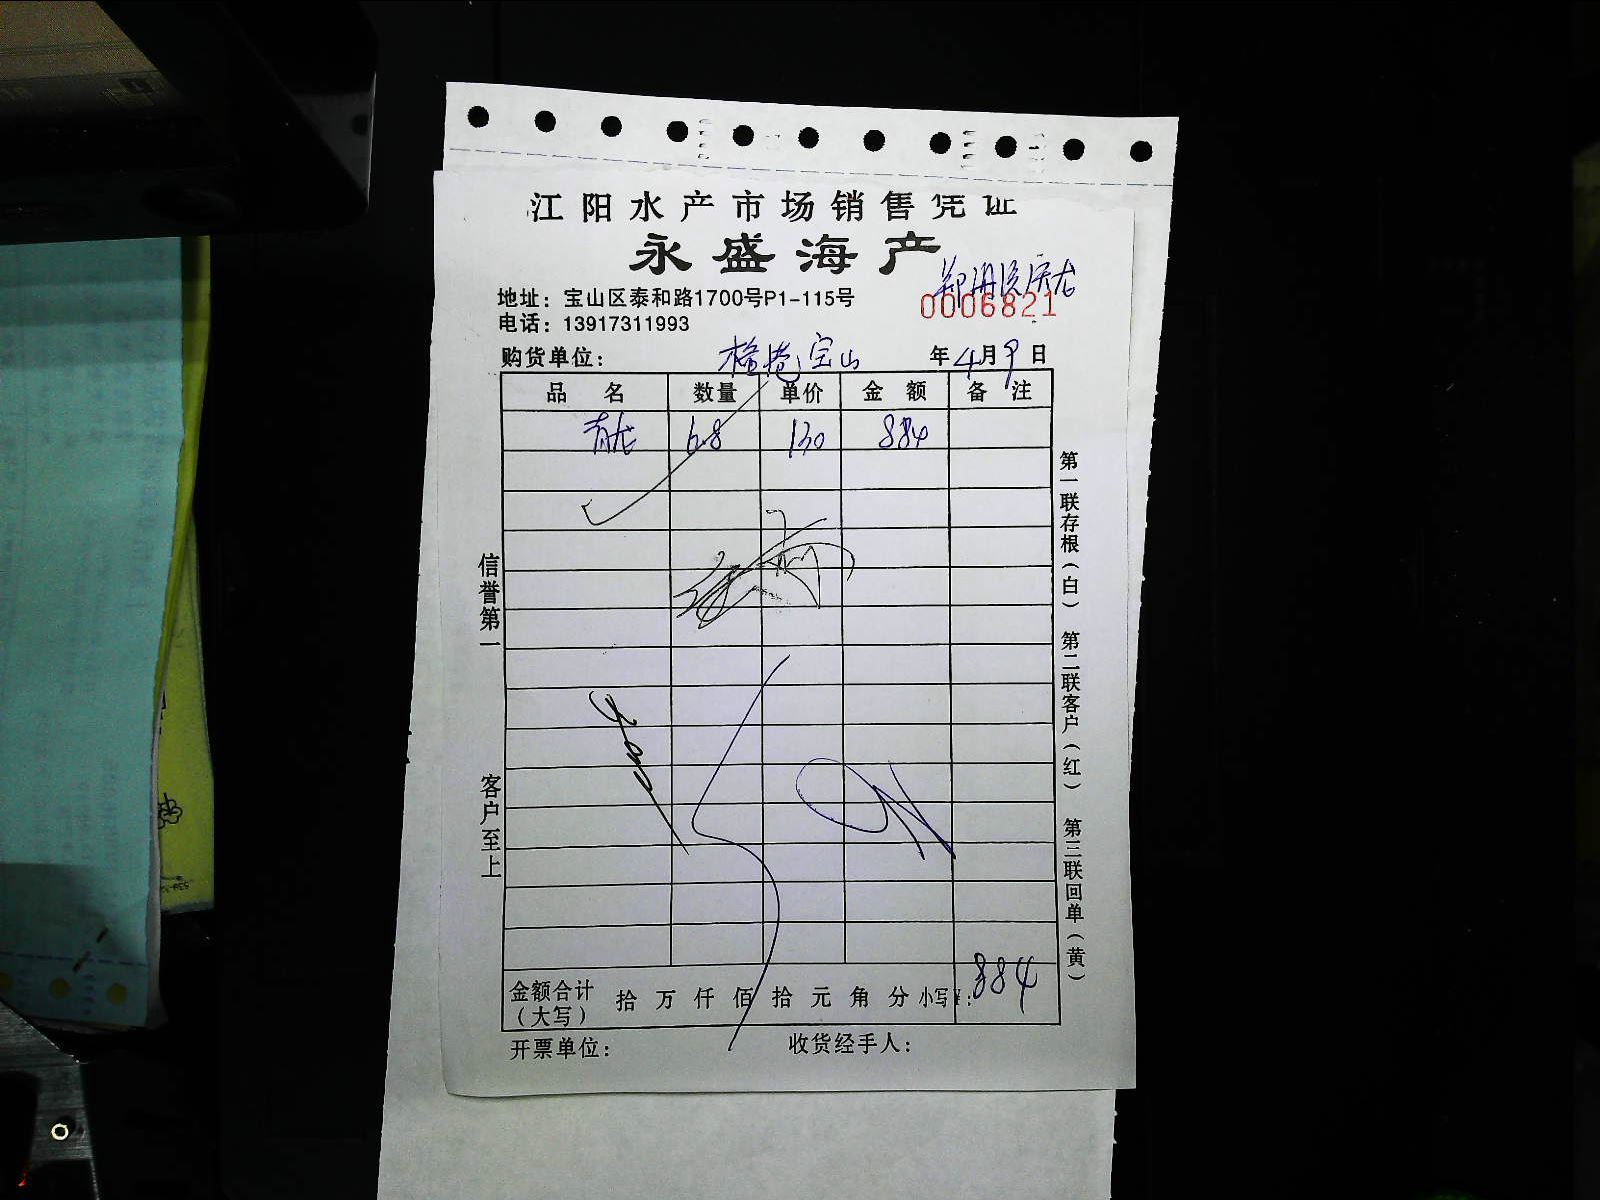 江阳水产市场销售凭证
永盛海产
地址：宝山区泰和路1700号P1-115号
0006821
电话：13917311993
购货单位： 宝山 年4月9日
品 名 数量 单价 金 额 备 注
青龙 6.8 130 884
信誉第一
客户至上
第一联存根（白） 第二联客户（红） 第三联回单（黄）
金额合计（大写） 拾 万 仟 佰 拾 元 角 分 小写¥：884
开票单位： 收货经手人：